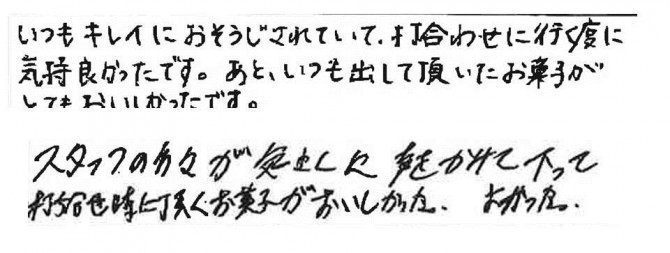 いつもキレイにおそうじされていて、打合わせに行く度に
気持良かったです。あと、いつも出して頂いたお菓子が
とてもおいしかったです。
スタッフの方々が 声をかけて下って
打合せ時に頂くお菓子がおいしかった。 よかった。